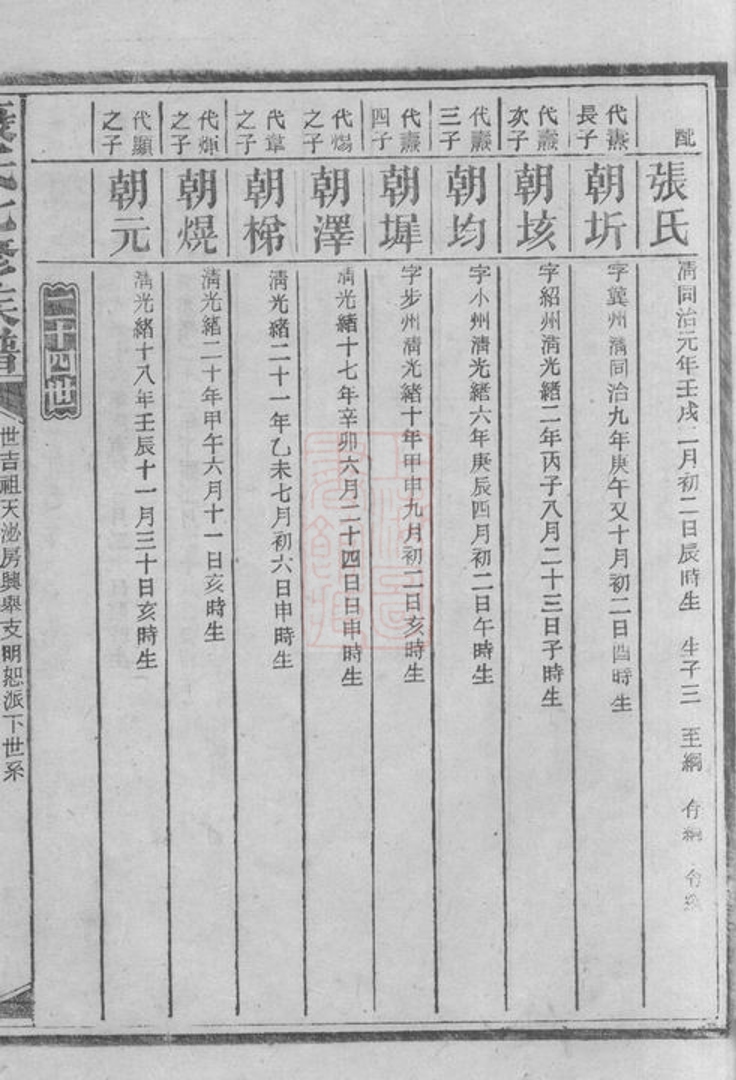 配
張氏
清同治元年壬戌二月初二日辰時生 生子三 至綱
代燾長子
朝圻
字冀州清同治九年庚午又十月初二日酉時生
代燾次子
朝垓
字紹州清光緒二年丙子八月二十三日子時生
代燾三子
朝均
字小州清光緒六年庚辰四月初二日午時生
代燾四子
朝墀
字步州清光緒十年甲申九月初二日亥時生
代煬之子
朝澤
清光緒十七年辛卯六月二十四日日申時生
代葦之子
朝梯
清光緒二十一年乙未七月初六日申時生
代煇之子
朝熀
清光緒二十年甲午六月十一日亥時生
代顯之子
朝元
清光緒十八年壬辰十一月三十日亥時生
氏七修族譜
世吉祖天泌房興舉支明恕派下世系